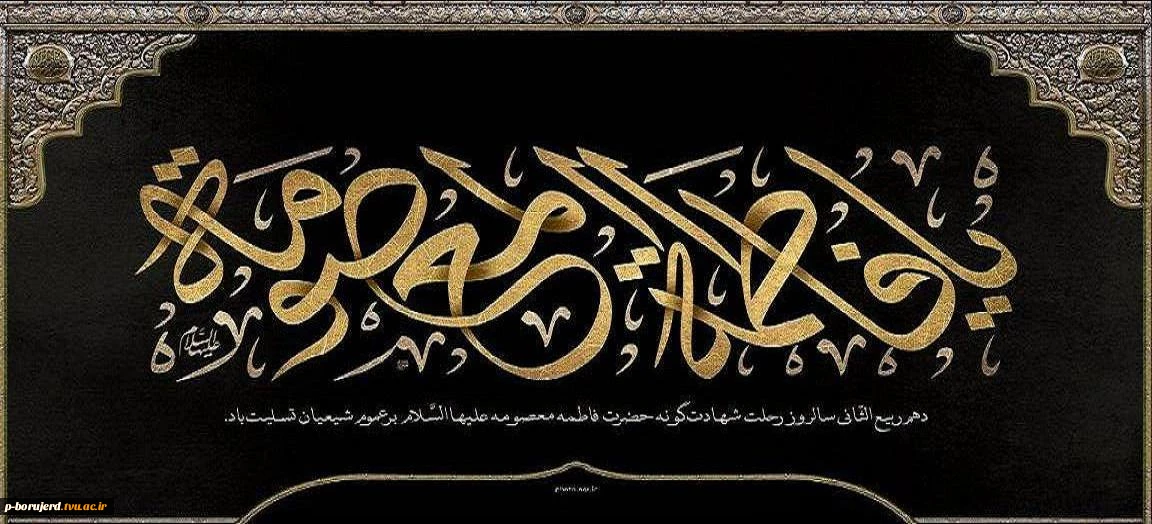 یا فاطمة المعصومة
علیها السلام
دهم ربیع الثانی سالروز رحلت شهادت‌گونه حضرت فاطمه معصومه علیها السَّلام بر عموم شیعیان تسلیت باد.
p-borujerd.tvu.ac.ir